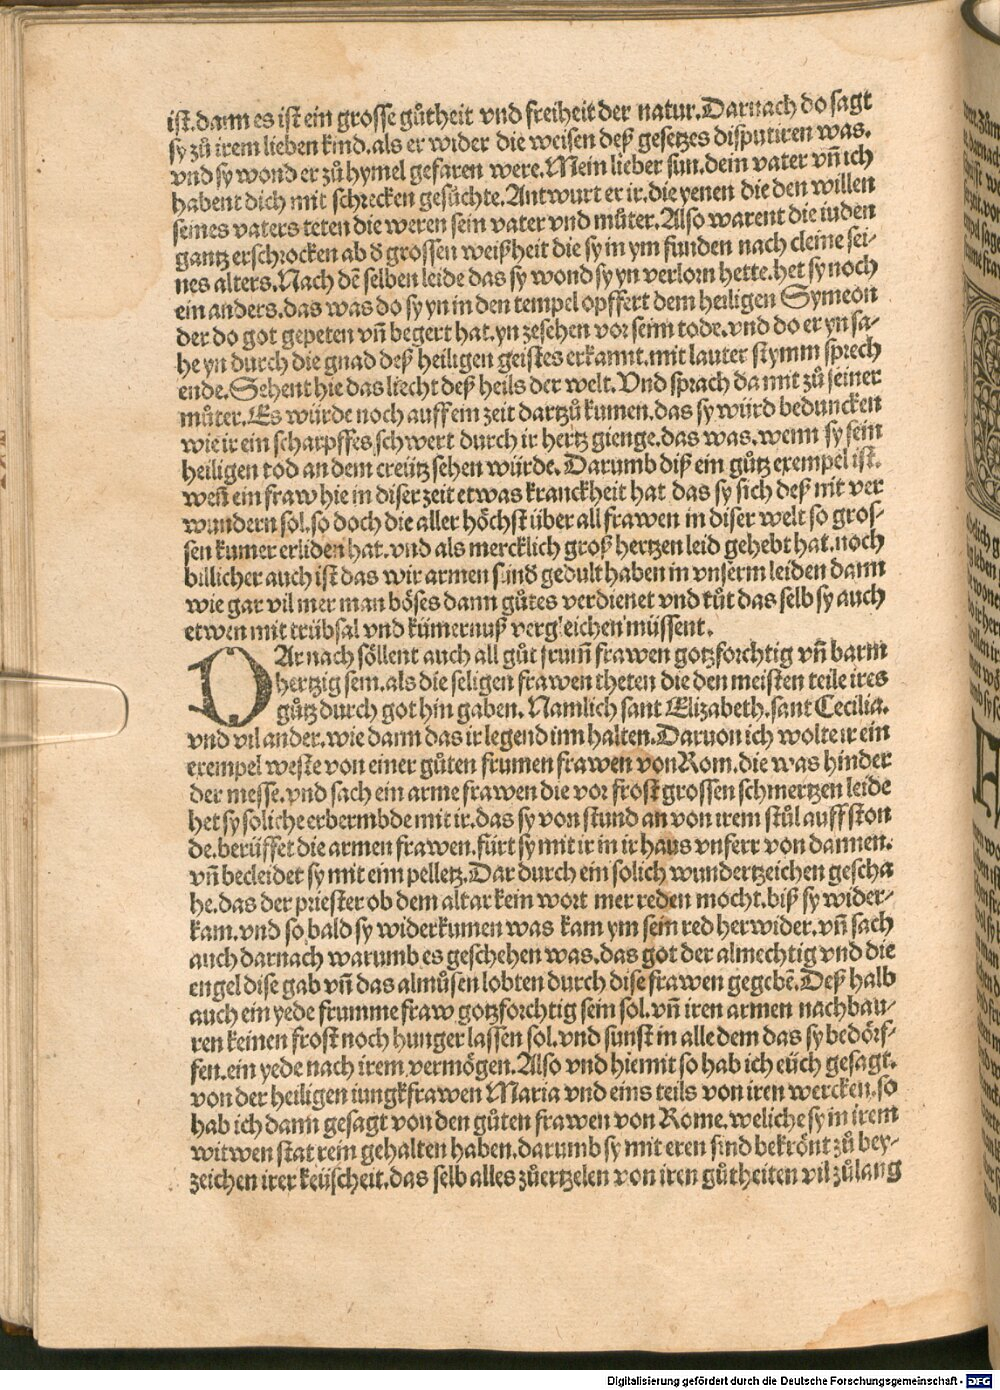 ist.dann es ist ein grosse gůtheit vnd freiheit der natur.Darnach do sagt
sy zů irem lieben kind.als er wider die weisen deß gesetzes disputiren was.
vnd sy wond er zů hymel gefaren were.Mein lieber sun.dein vater vñ ich
habent dich mit schrecken gesůchte.Antwurt er ir.die yenen die den willen
seines vaters teten die weren sein vater vnd můter.Also warent die iuden
gantz erschrocken ab d̕ grossen weißheit die sy in ym funden nach cleine sei⸗
nes alters.Nach dē selben leide das sy wond sy yn verlorn hette.het sy noch
ein anders.das was do sy yn in den tempel opffert dem heiligen Symeon
der do got gepeten vñ begert hat.yn zesehen vor seim tode.vnd do er yn sa⸗
he yn durch die gnad deß heiligen geistes erkannt.mit lauter stymm sprech
ende.Sehent hie das liecht deß heils der welt.Vnd sprach da mit zů seiner
můter.Es würde noch auff ein zeit dartzů kumen.das sy würd beduncken
wie ir ein scharpffes schwert durch ir hertz gienge.das was.wenn sy sein
heiligen tod an dem creütz sehen würde.Darumb diß ein gůtz exempel ist.
weñ ein fraw hie in diser zeit etwas kranckheit hat das sy sich deß nit ver
wundern sol.so doch die aller höchst über all frawen in diser welt so gros⸗
sen kumer erliden hat.vnd als mercklich groß hertzen leid gehebt hat.noch
billicher auch ist das wir armen sünd̕ gedult haben in vnserm leiden dann
wie gar vil mer man böses dann gůtes verdienet vnd tůt das selb sy auch
etwen mit trübsal vnd kümernuß vergleichen müssent.
DAr nach söllent auch all gůt frum̃ frawen gotzforchtig vñ barm
hertzig sein.als die seligen frawen theten die den meisten teile ires
gůtz durch got hin gaben.Namlich sant Elizabeth.sant Cecilia.
vnd vil ander.wie dann das ir legend inn halten.Daruon ich wolte ir ein
exempel weste von einer gůten frumen frawen von Rom.die was hinder
der messe.vnd sach ein arme frawen die vor frost grossen schmertzen leide
het sy soliche erbermbde mit ir.das sy von stund an von irem stůl auff ston
de.berüffet die armen frawen.fürt sy mit ir in ir haus vnferr von dannen.
vñ becleidet sy mit eim pelletz.Dar durch ein solich wundertzeichen gescha
he.das der priester ob dem altar kein wort mer reden mocht.biß sy wider⸗
kam.vnd so bald sy widerkumen was kam ym sein red her wider.vñ sach
auch darnach warumb es geschehen was.das got der almechtig vnd die
engel dise gab vñ das almůsen lobten durch dise frawen gegebē.Deß halb
auch ein yede frumme fraw gotzforchtig sein sol.vñ iren armen nachbau⸗
ren keinen frost noch hunger lassen sol.vnd sunst in alle dem das sy bedörf⸗
fen.ein yede nach irem vermögen.Also vnd hiemit so hab ich eüch gesagt.
von der heiligen iungkfrawen Maria vnd eins teils von iren wercken.so
hab ich dann gesagt von den gůten frawen von Rome.weliche sy in irem
witwen stat rein gehalten haben.darumb sy mit eren sind bekrönt zů bey⸗
zeichen irer keüscheit.das selb alles zůertzelen von iren gůtheiten vil zůlang
Digitalisierung gefördert durch die Deutsche Forschungsgemeinschaft - DFG